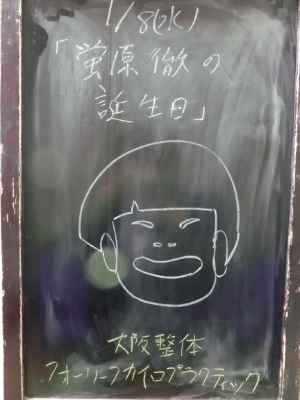 1/8(水)
「蛍原徹の
誕生日」
大阪整体
フォーリーフカイロプラクティック